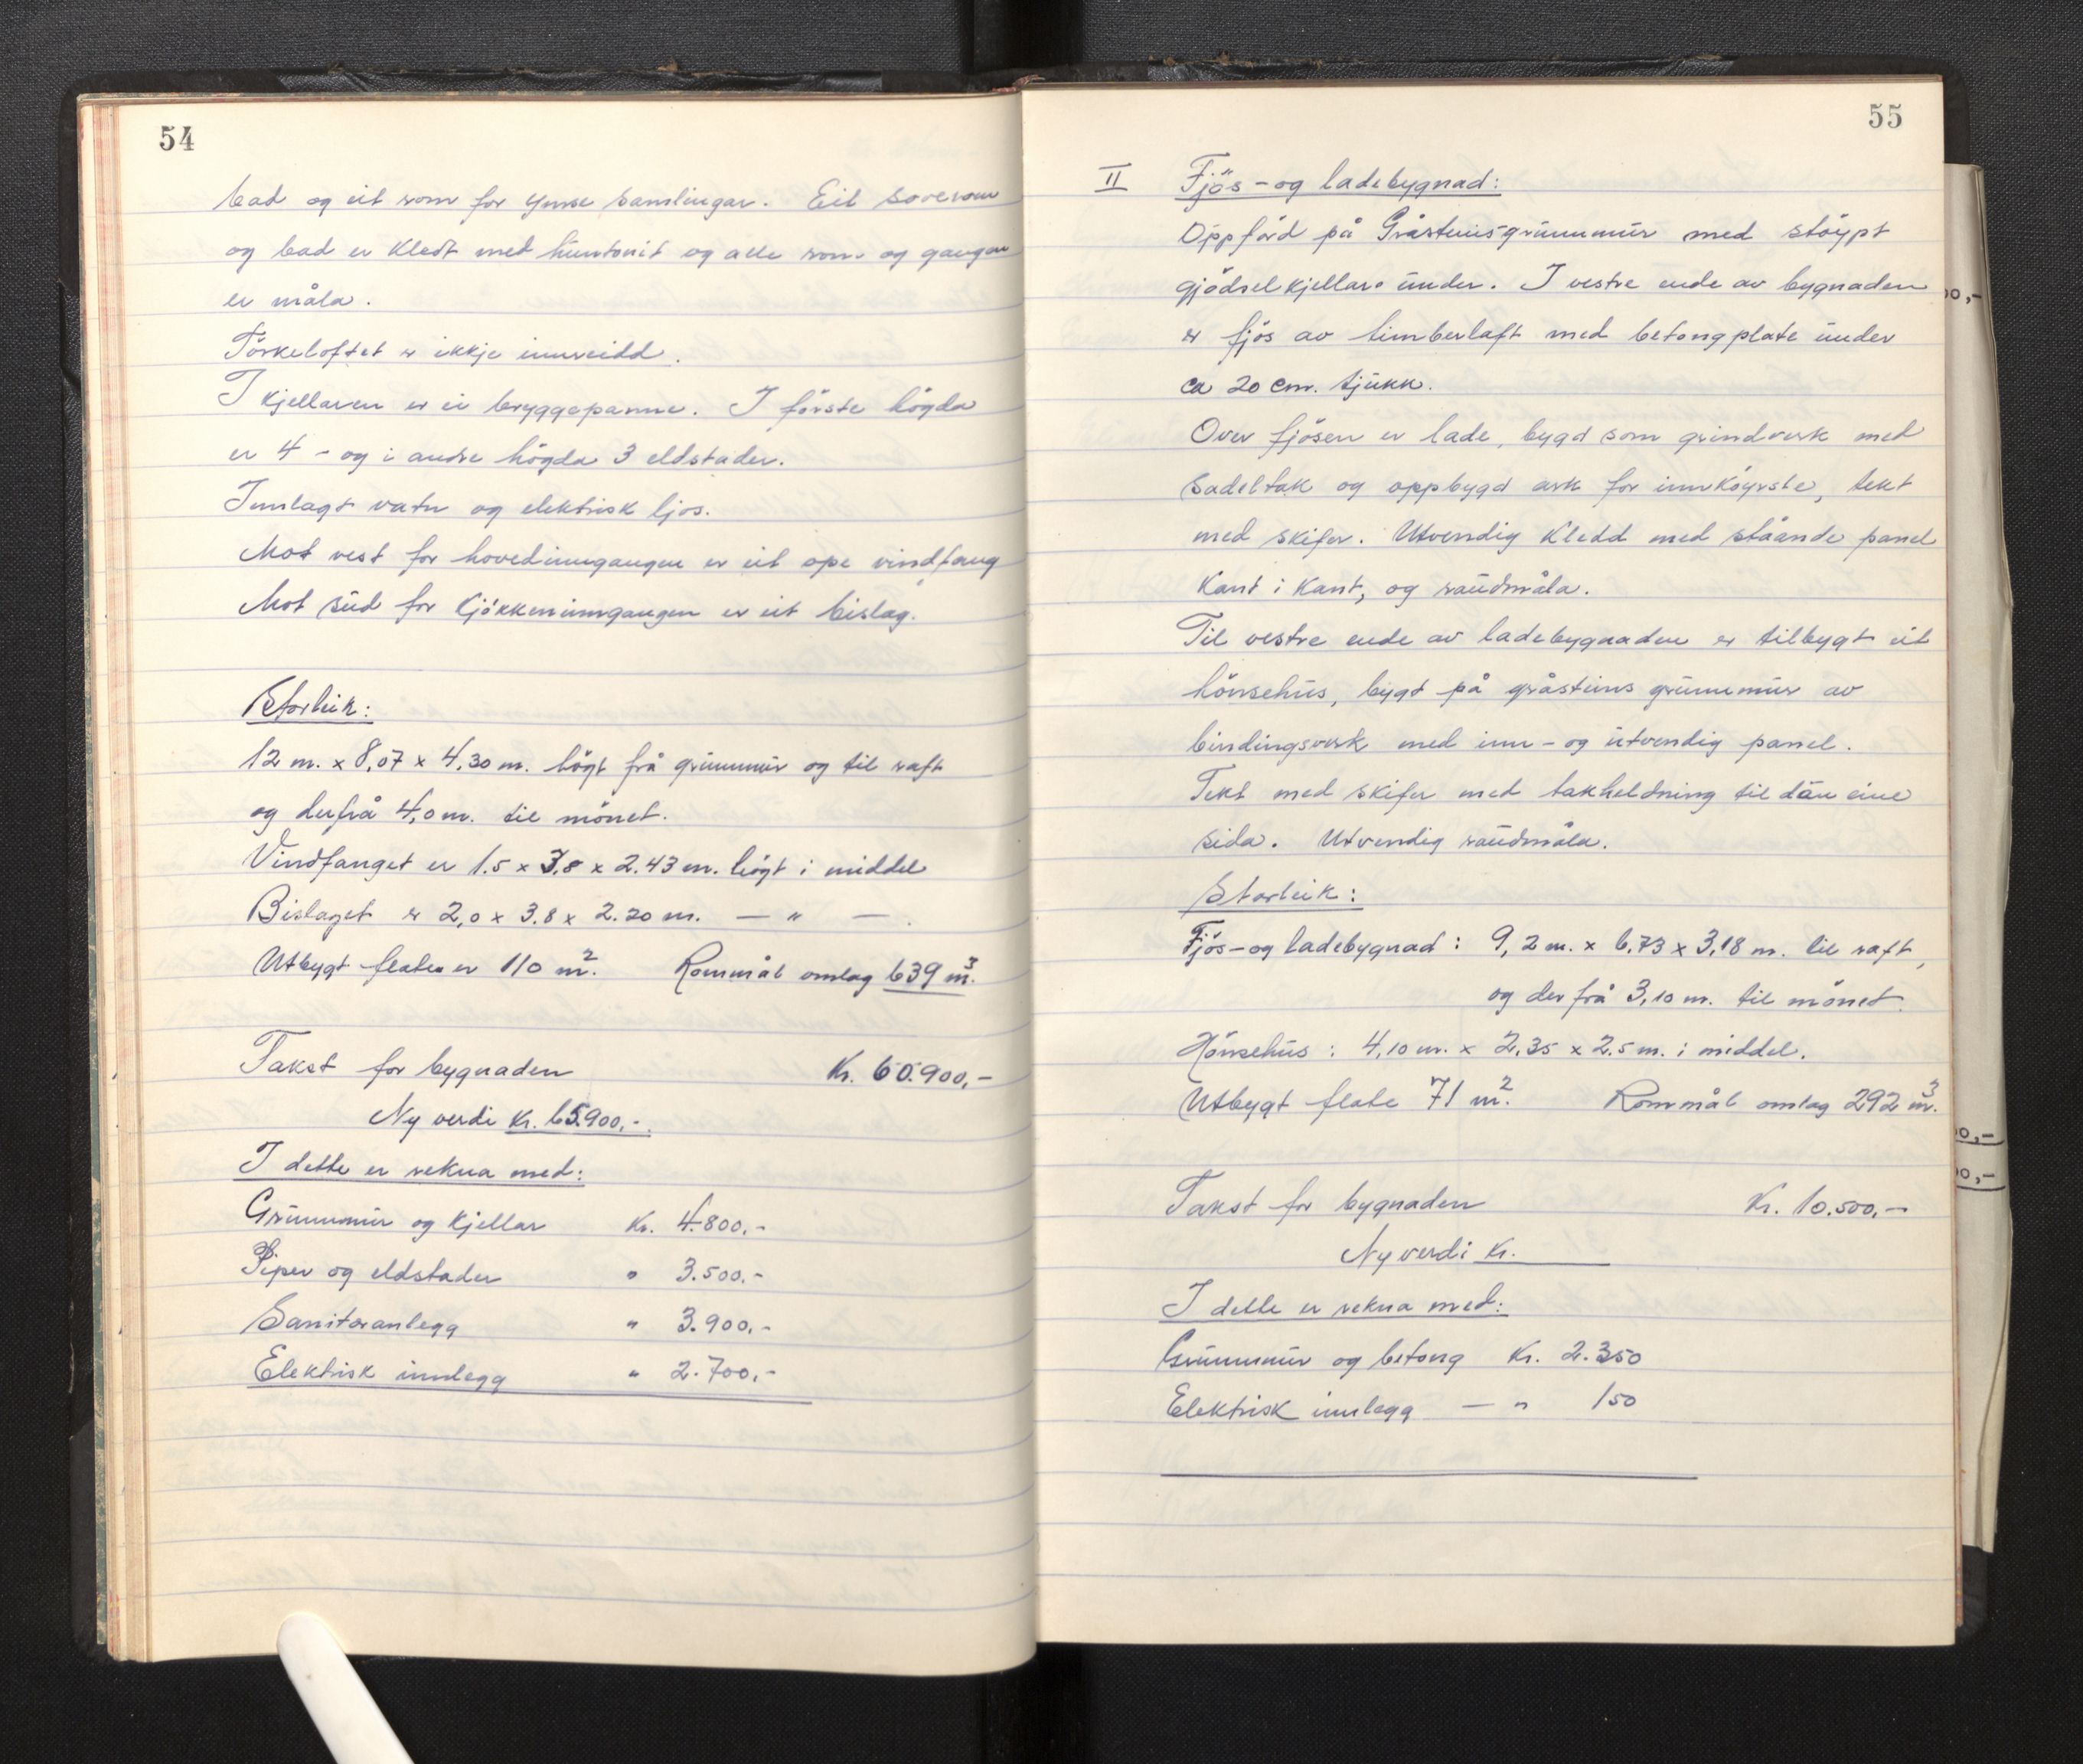 54
bad og eit rom for ymse samlingar. Eit soverom
og bad er kledt med huntonit og alle rom og gangar
er måla.
Törkeloftet er ikkje innreidd.
I kjellaren er ei bryggepanne. I förste högda
er 4 - og i andre högda 3 eldstader.
Innlagt vatn og elektrisk ljos.
Mot vest for hovedinngangen er eit ope vindfang
Mot süd for kjökkeninngangen er eit bislag.
Storleik:
12 m. x 8,07 x 4,30 m. högt frå grünnmür og til raft
og derfrå 4,0 m. til mönet.
Vindfanget er 1.5 x 3,8 x 2.43 m. högt i middel
Bislaget er 2,0 x 3.8 x 2.20 m. — " — .
Utbygt flate er 110 m². Rommål omlag 639 m³.
Takst for bygnaden Kr. 60.900,-
Ny verdi Kr. 65.900,-.
I dette er rekna med:
Grünnmür og kjellar Kr. 4.800,-
Piper og eldstader " 3.500.-
Sanitæranlegg " 3.900,-
Elektrisk innlegg " 2.700,-
55
II Fjös- og ladebygnad:
Oppförd på Gråsteinsgrünnmür med stöypt
gjödselkjellar ünder. I vestre ende av bygnaden
er fjös av timberlaft med betongplate ünder
ca 20 cm. tjükk.
Over fjösen er lade, bygd som grindverk med
sadeltak og oppbygd ark for innköyrsle, tekt
med skifer. Utvendig kledd med ståande panel
kant i kant, og raüdmåla.
Til vestre ende av ladebygnaden er tilbygt eit
hönsehüs, bygt på gråsteins grünnmür av
bindingsverk med inn- og ütvendig panel.
Tekt med skifer med takheldning til dån eine
sida. Utvendig raüdmåla.
Storleik:
Fjös- og ladebygnad: 9,2 m. x 6,73 x 3,18 m. til raft,
og der frå 3,10 m. til mönet.
Hönsehüs: 4,10 m. x 2,35 x 2.5 m. i middel.
Utbygt flate 71 m². Rommål omlag 292 m³.
Takst for bygnaden Kr. 10.500,-
Ny verdi Kr.
I dette er rekna med:
Grünnmür og betong Kr. 2.350
Elektrisk innlegg — " 150
00,-
0,-
00,-